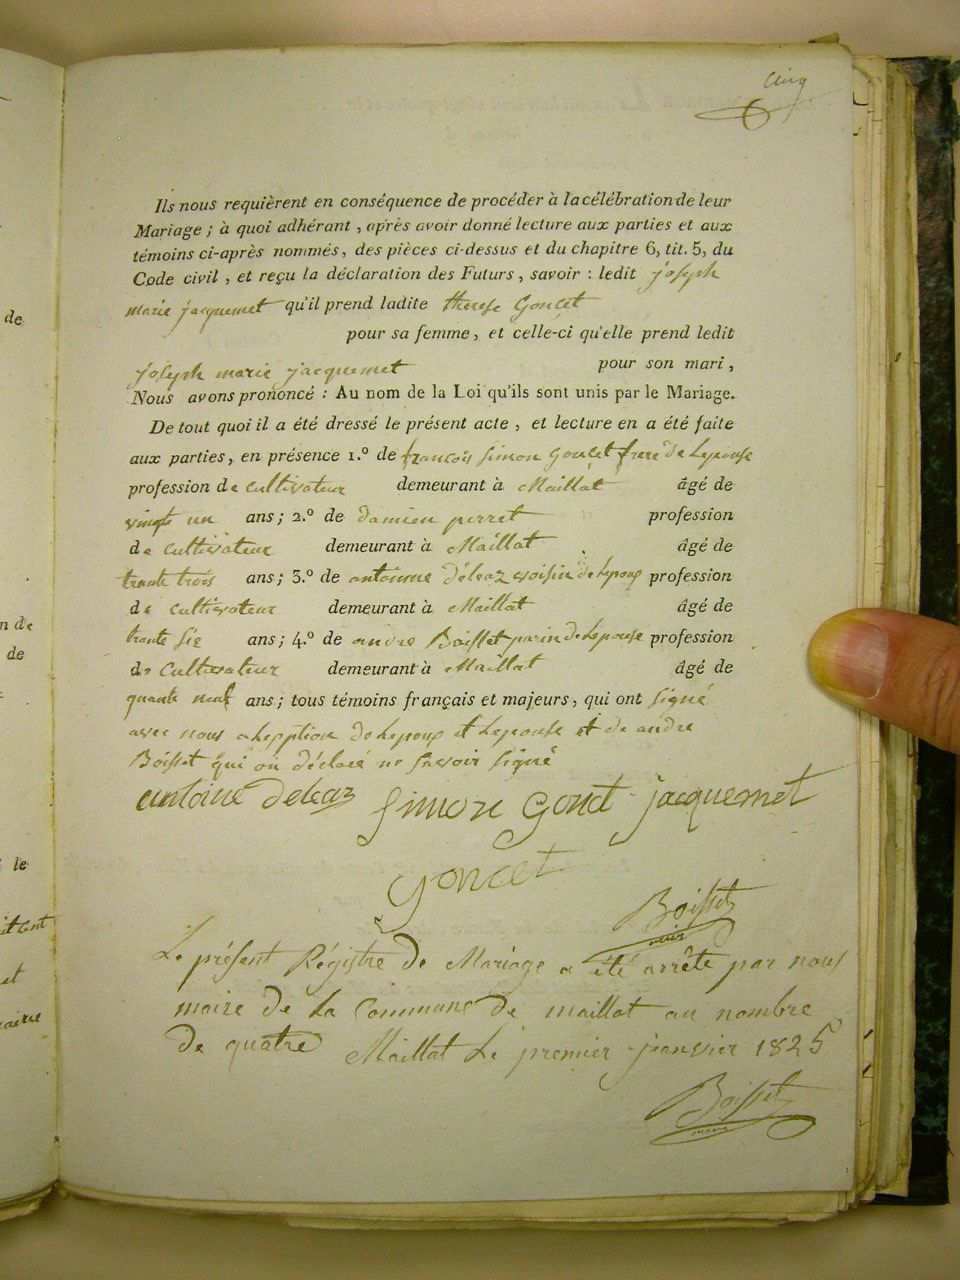 Cinq
Ils nous requièrent en conséquence de procéder à la célébration de leur
Mariage ; à quoi adhérant , après avoir donné lecture aux parties et aux
témoins ci-après nommés, des pièces ci-dessus et du chapitre 6, tit. 5, du
Code civil , et reçu la déclaration des Futurs , savoir : ledit joseph
marie jacquemet qu'il prend ladite therese Goncet
pour sa femme, et celle-ci qu'elle prend ledit
joseph marie jacquemet pour son mari,
Nous avons prononcé : Au nom de la Loi qu'ils sont unis par le Mariage.
De tout quoi il a été dressé le présent acte , et lecture en a été faite
aux parties, en présence 1.º de françois simon Goncet frere de Lepouse
profession de cultivateur demeurant à Maillat âgé de
vingt un ans; 2.º de damien perret profession
de cultivateur demeurant à Maillat âgé de
trante trois ans; 3.º de antoinne déleaz voisin de Lepoux profession
de cultivateur demeurant à Maillat âgé de
trante sie ans; 4.º de andre Boisset parin de Lepouse profession
de Cultivateur demeurant à Maillat âgé de
quante neuf ans; tous témoins français et majeurs, qui ont signé
avec nous a Lepption de Lepoux et Lepouse et de andre
Boisset qui on déclaré ne savoir signé
antoine deleaz simon Goncet jacquemet
goncet
Boisset
maire
Le présent Régistre de Mariage a été arrête par nous
maire de La Commune de maillat au nombre
de quatre Maillat Le premier janvier 1825
Boisset
maire
de
n de
de
le
et